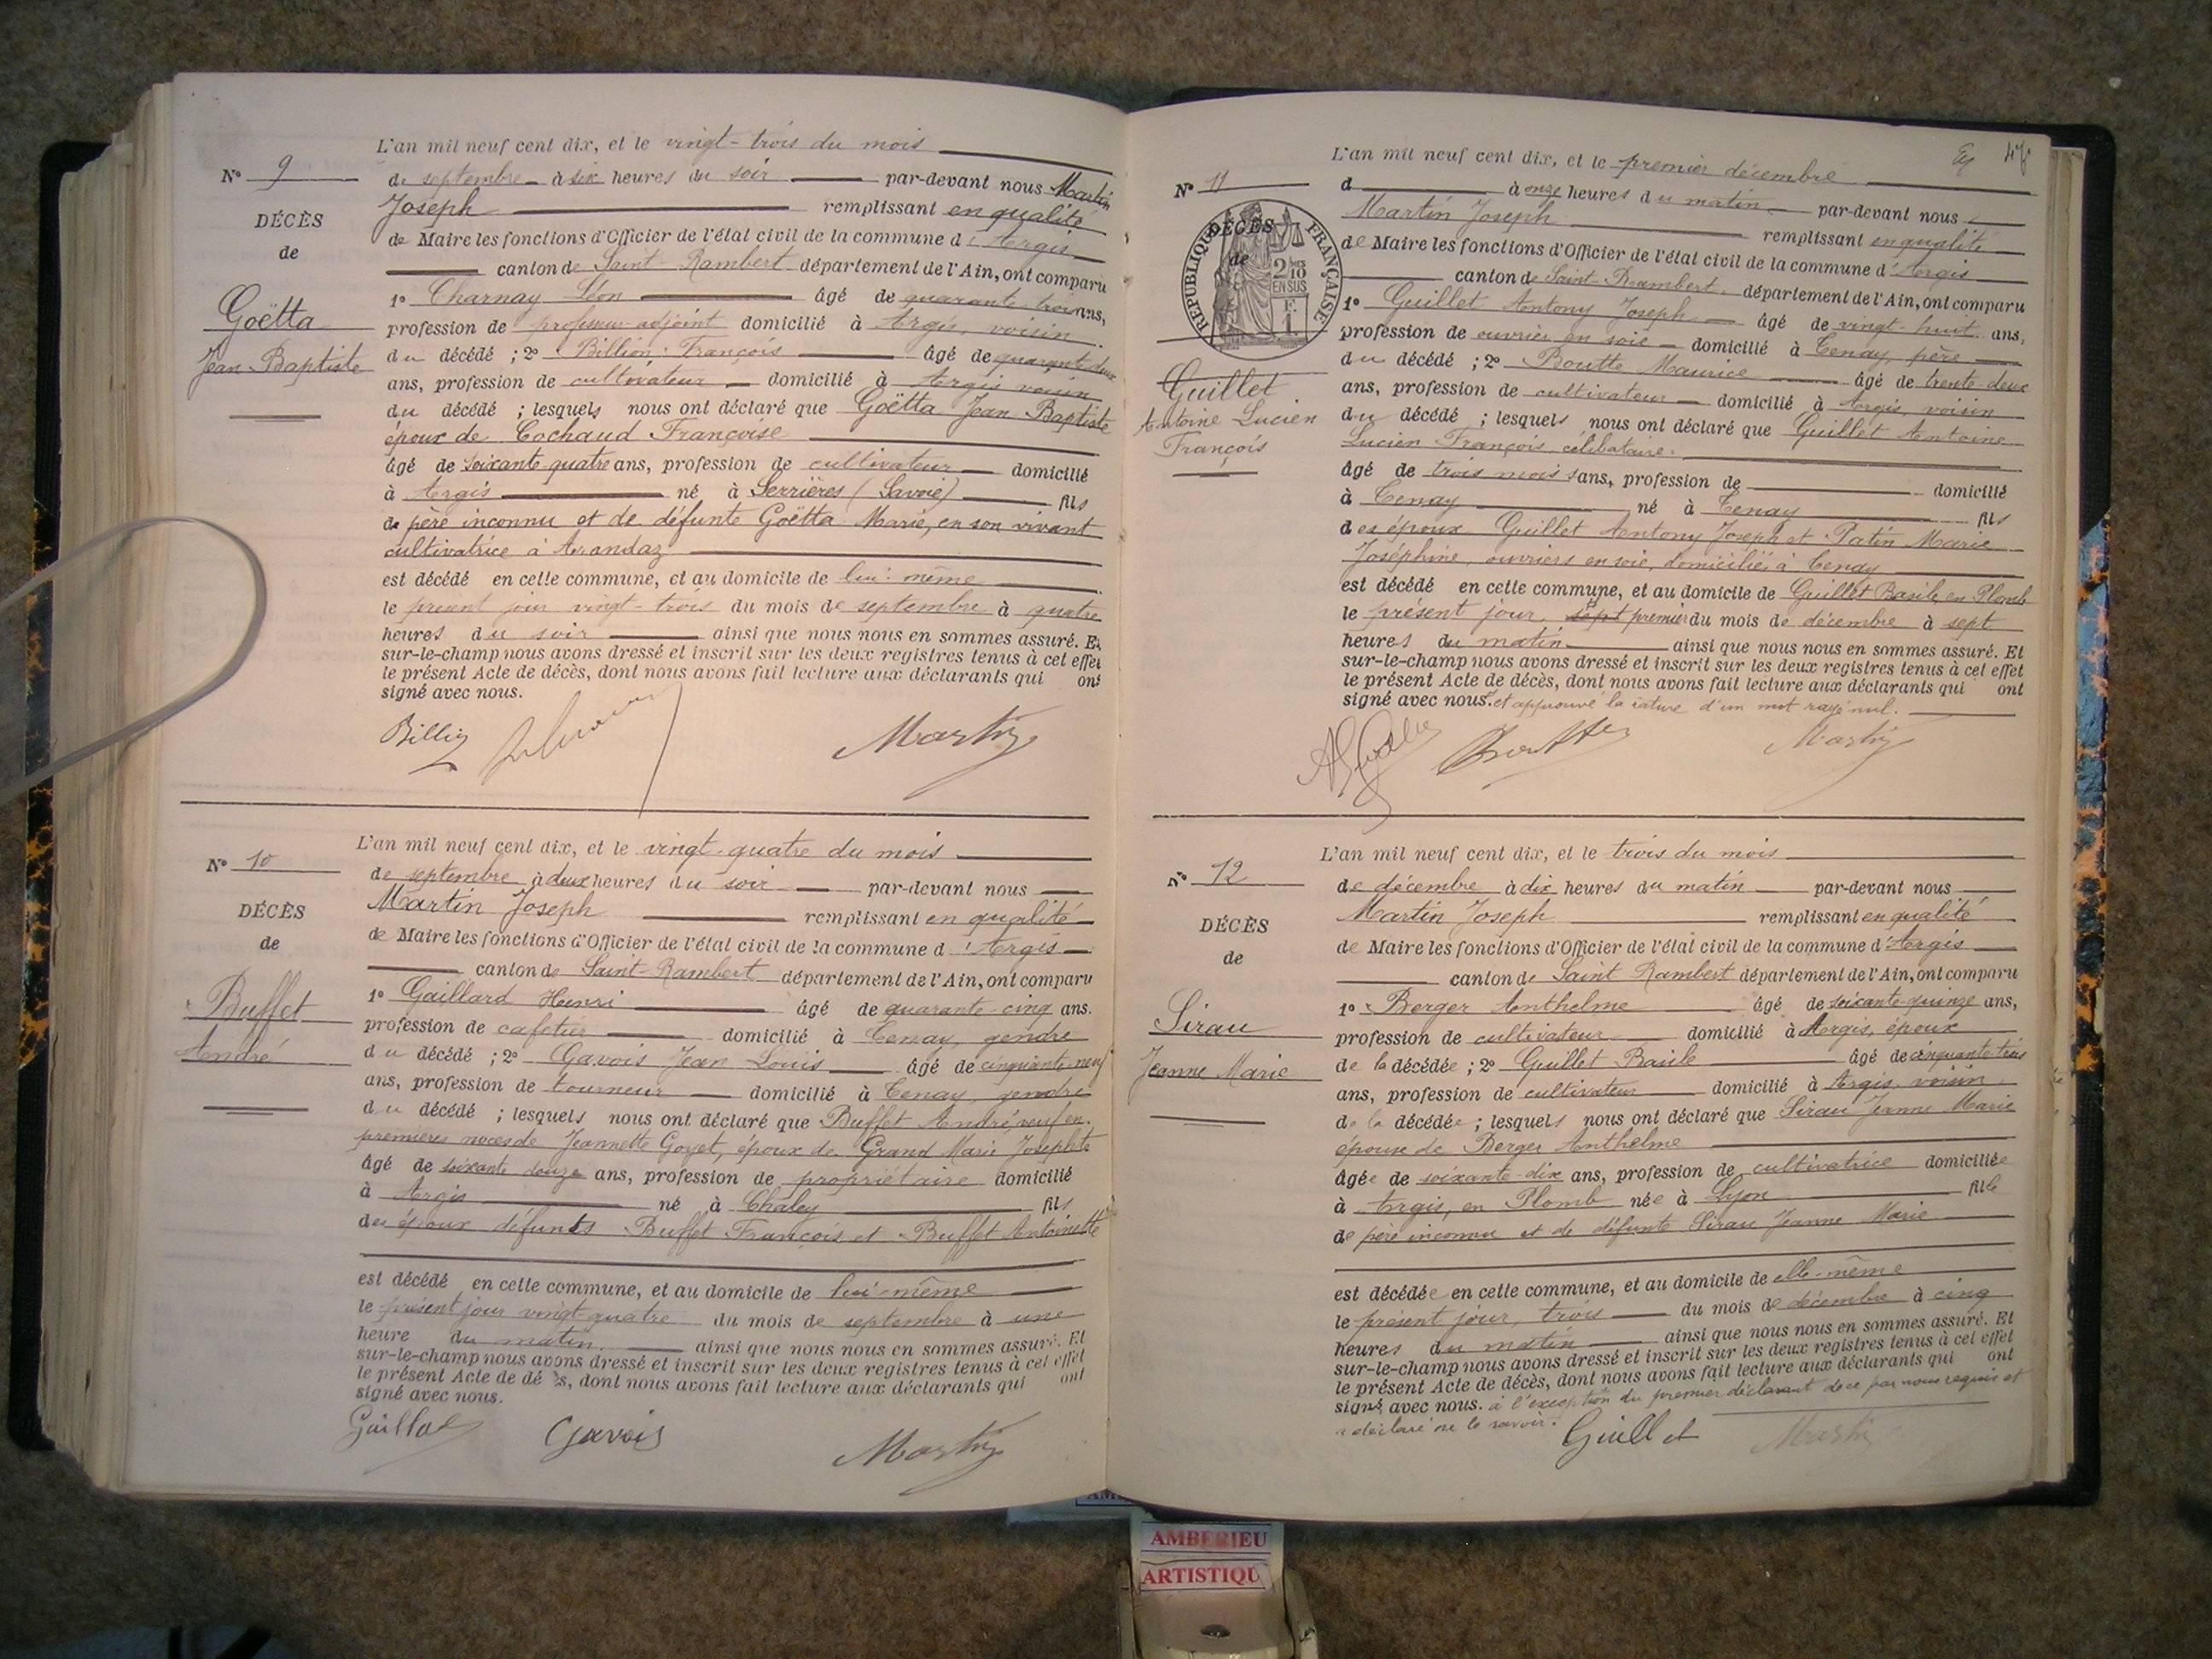 L'an mil neuf cent dix, et le vingt-trois du mois
N° 9
de septembre à six heures du soir par-devant nous Martin
Joseph remplissant en qualité
DÉCÈS
de Maire les fonctions d'Officier de l'état civil de la commune d'Argis
de
canton de Saint-Rambert département de l'Ain, ont comparu
1° Charnay Léon âgé de quarante trois ans,
Goëtta
profession de professeur-adjoint domicilié à Argis, voisin
Jean Baptiste
du décédé ; 2° Billion François âgé de quarante deux
ans, profession de cultivateur domicilié à Argis voisin
du décédé ; lesquels nous ont déclaré que Goëtta Jean Baptiste
époux de Cochaud Françoise
âgé de soixante quatre ans, profession de cultivateur domicilié
à Argis né à Serrières (Savoie) fils
de père inconnu et de défunte Goëtta Marie, en son vivant
cultivatrice à Arandaz
est décédé en cette commune, et au domicile de lui-même
le présent jour vingt-trois du mois de septembre à quatre
heures du soir ainsi que nous nous en sommes assuré. Et
sur-le-champ nous avons dressé et inscrit sur les deux registres tenus à cet effet
le présent Acte de décès, dont nous avons fait lecture aux déclarants qui ont
signé avec nous.
Billion Martin
L'an mil neuf cent dix, et le vingt-quatre du mois
N° 10
de septembre à deux heures du soir par-devant nous
Martin Joseph remplissant en qualité
DÉCÈS
de Maire les fonctions d'Officier de l'état civil de la commune d'Argis
de
canton de Saint-Rambert département de l'Ain, ont comparu
1° Gaillard Henri âgé de quarante-cinq ans.
Buffet
profession de cafetier domicilié à Tenay, gendre
André
du décédé ; 2° Gavois Jean Louis âgé de cinquante-neuf
ans, profession de tourneur domicilié à Tenay, gendre
du décédé ; lesquels nous ont déclaré que Buffet André, veuf en
premières noces de Jeannette Goyet, époux de Grand Marie Josephte
âgé de soixante douze ans, profession de propriétaire domicilié
à Argis né à Chaley fils
des époux défunts Buffet François et Buffet Antoinette
est décédé en cette commune, et au domicile de lui-même
le présent jour vingt-quatre du mois de septembre à une
heure du matin, ainsi que nous nous en sommes assuré. Et
sur-le-champ nous avons dressé et inscrit sur les deux registres tenus à cet effet
le présent Acte de dé s, dont nous avons fait lecture aux déclarants qui ont
signé avec nous.
Gaillard Gavois Martin
47
L'an mil neuf cent dix, et le premier décembre
N° 11
d à onze heures du matin par-devant nous
Martin Joseph remplissant en qualité
DÉCÈS
de
RÉPUBLIQUE FRANÇAISE
2/10 EN SUS
F. 1.
de Maire les fonctions d'Officier de l'état civil de la commune d'Argis
canton de Saint-Rambert département de l'Ain, ont comparu
1° Guillet Antony Joseph âgé de vingt-huit ans,
profession de ouvrier en soie domicilié à Tenay, père
Guillet
Antoine Lucien
François
du décédé ; 2° Boutte Maurice âgé de trente-deux
ans, profession de cultivateur domicilié à Argis, voisin
du décédé ; lesquels nous ont déclaré que Guillet Antoine
Lucien François, célibataire
âgé de trois mois sans, profession de domicilié
à Tenay né à Tenay fils
des époux Guillet Antony Joseph et Patin Marie
Joséphine, ouvriers en soie, domiciliés à Tenay
est décédé en cette commune, et au domicile de Guillet Basile, en Plomb
le présent jour, sept premier du mois de décembre à sept
heures du matin ainsi que nous nous en sommes assuré. Et
sur-le-champ nous avons dressé et inscrit sur les deux registres tenus à cet effet
le présent Acte de décès, dont nous avons fait lecture aux déclarants qui ont
signé avec nous. et approuvé la rature d'un mot rayé nul.
Boutte Martin
L'an mil neuf cent dix, et le trois du mois
N° 12
de décembre à dix heures du matin par-devant nous
Martin Joseph remplissant en qualité
DÉCÈS
de Maire les fonctions d'Officier de l'état civil de la commune d'Argis
de
canton de Saint Rambert département de l'Ain, ont comparu
1° Berger Anthelme âgé de soixante-quinze ans,
Sirau
profession de cultivateur domicilié à Argis, époux
Jeanne Marie
de la décédée ; 2° Guillet Basile âgé de cinquante-trois
ans, profession de cultivateur domicilié à Argis, voisin
de la décédée ; lesquels nous ont déclaré que Sirau Jeanne Marie
épouse de Berger Anthelme
âgée de soixante-dix ans, profession de cultivatrice domiciliée
à Argis, en Plomb née à Lyon fille
de père inconnu et de défunte Sirau Jeanne Marie
est décédée en cette commune, et au domicile de elle-même
le présent jour, trois du mois de décembre à cinq
heures du matin ainsi que nous nous en sommes assuré. Et
sur-le-champ nous avons dressé et inscrit sur les deux registres tenus à cet effet
le présent Acte de décès, dont nous avons fait lecture aux déclarants qui ont
signé avec nous. à l'exception du premier déclarant de ce par nous requis et
a déclaré ne le savoir.
Guillet Martin
AMBERIEU
ARTISTIQU